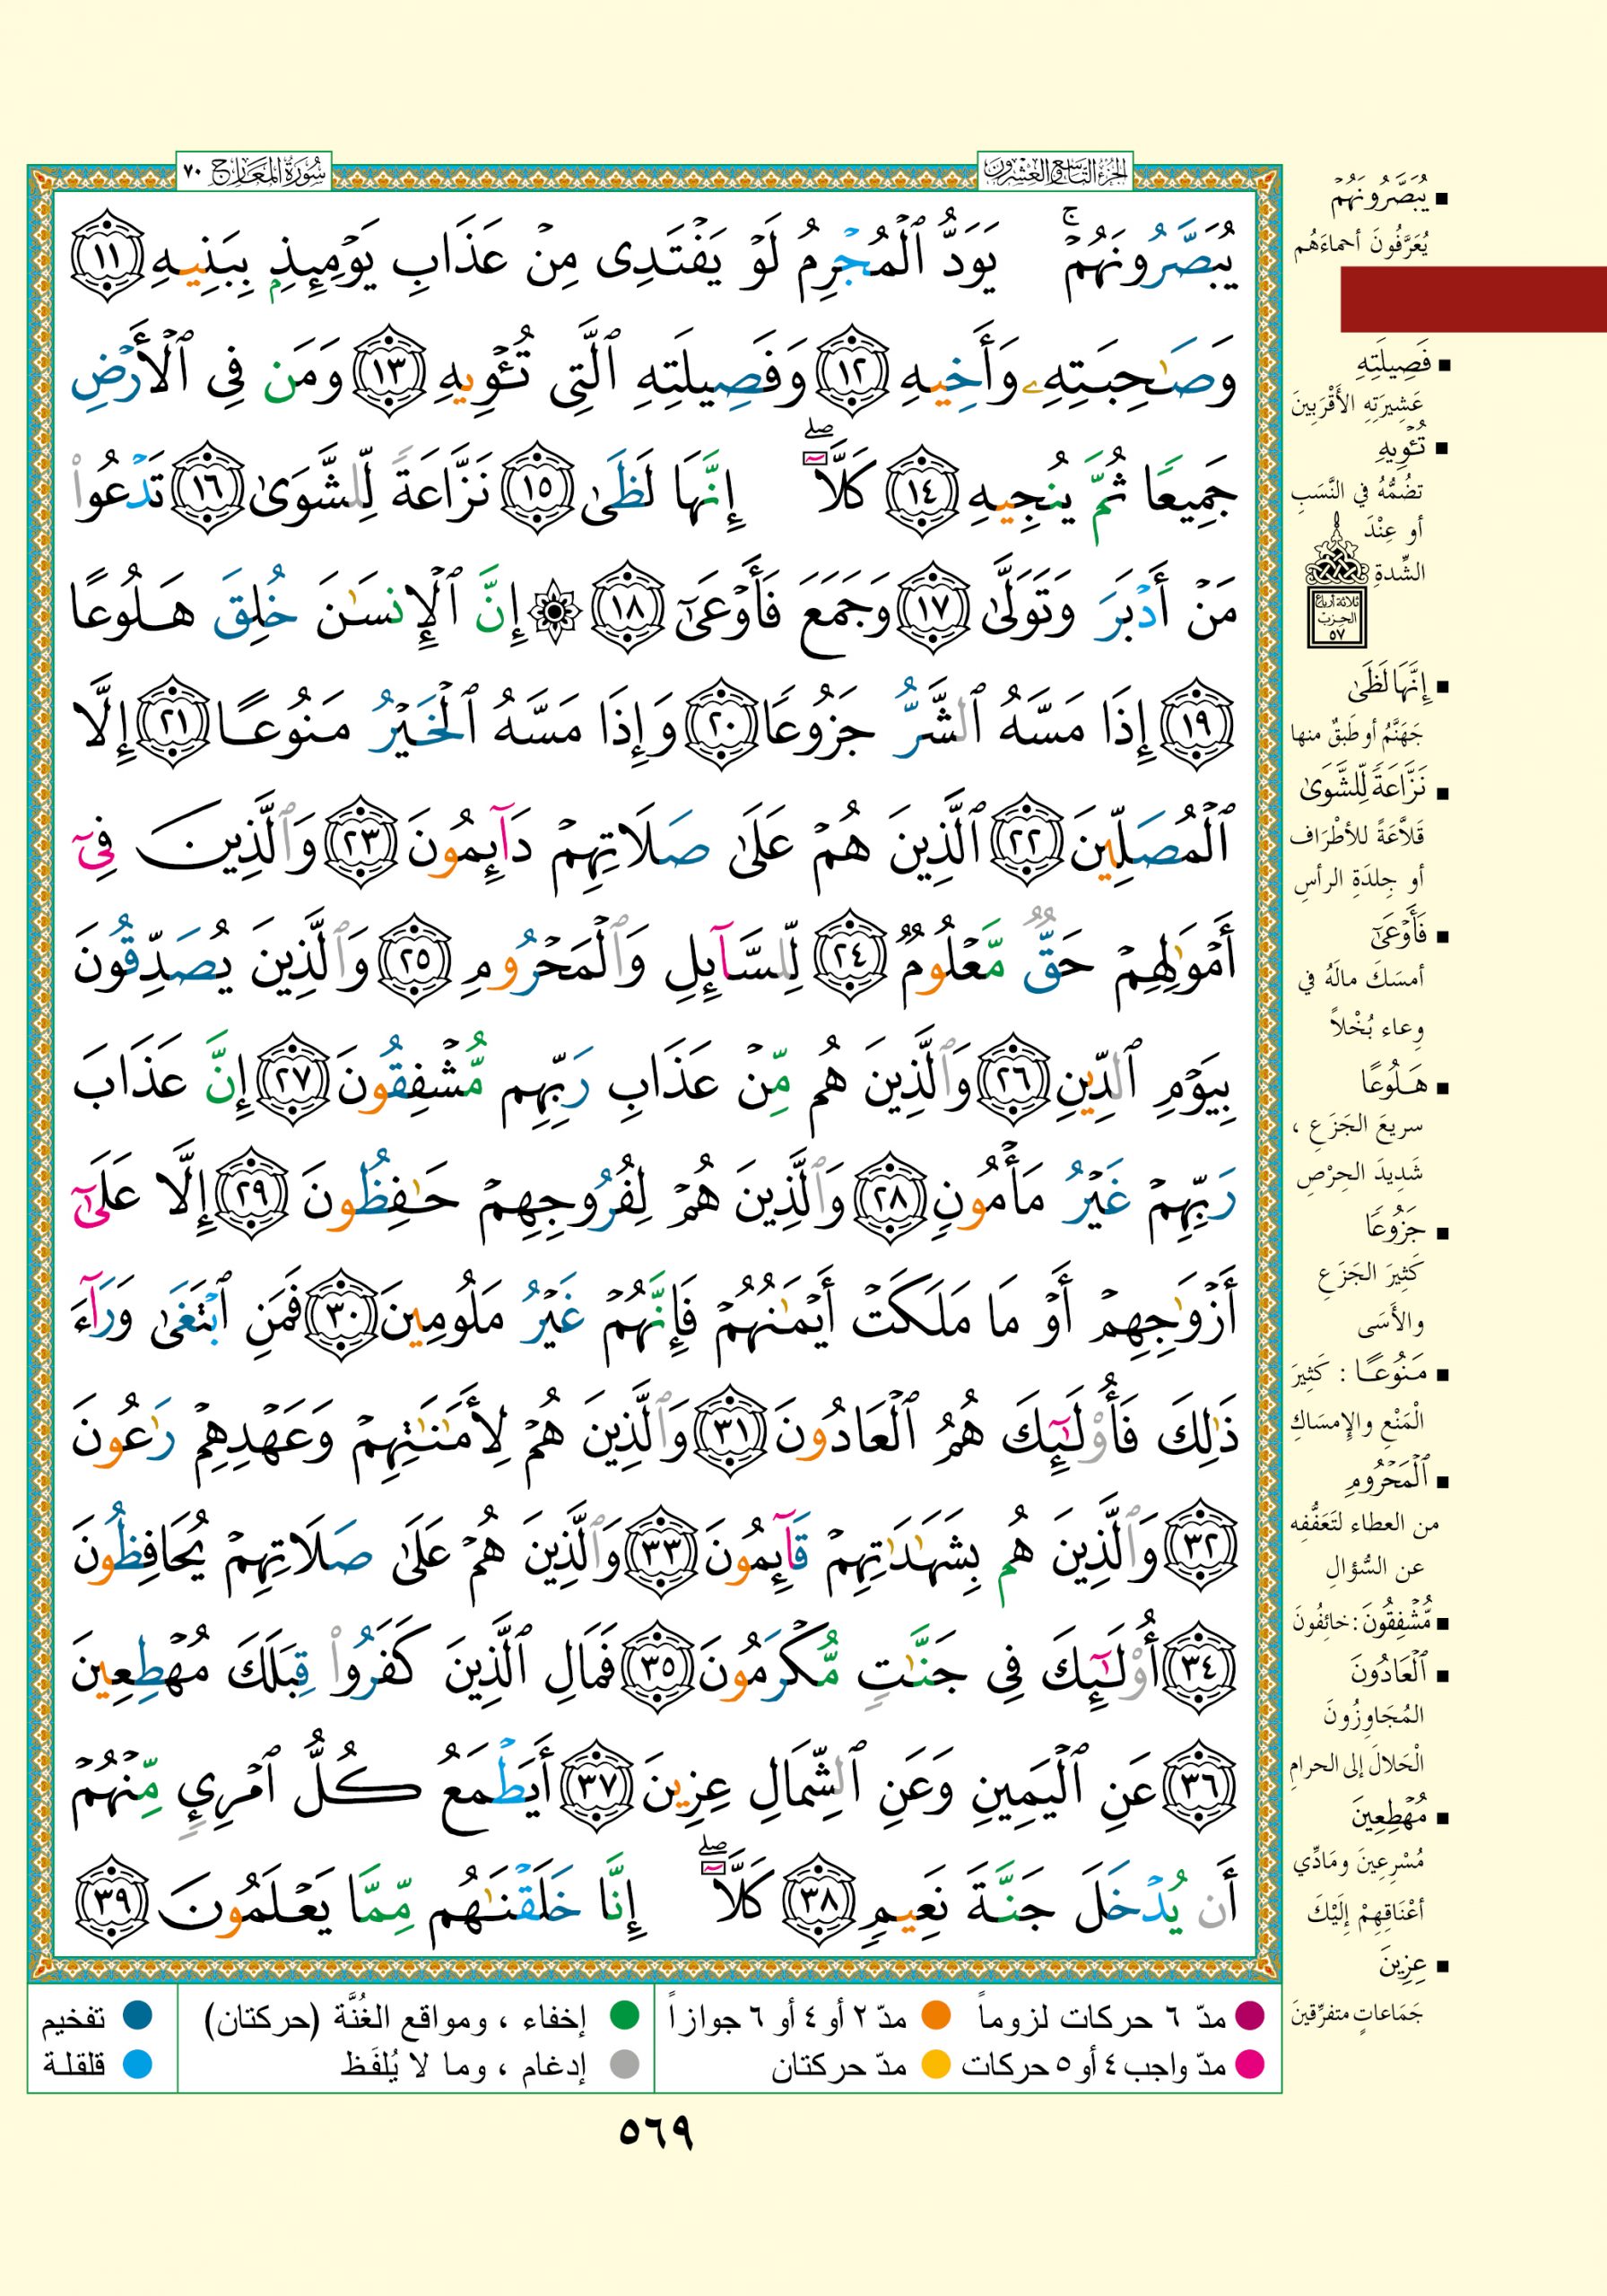 الجزء التاسع والعشرون
سورة المعارج ٧٠
يُبَصَّرُونَهُمْ ۚ يَوَدُّ ٱلْمُجْرِمُ لَوْ يَفْتَدِى مِنْ عَذَابِ يَوْمِئِذٍۭ بِبَنِيهِ ١١
وَصَٰحِبَتِهِۦ وَأَخِيهِ ١٢ وَفَصِيلَتِهِ ٱلَّتِى تُـْٔوِيهِ ١٣ وَمَن فِى ٱلْأَرْضِ
جَمِيعًا ثُمَّ يُنجِيهِ ١٤ كَلَّآ ۖ إِنَّهَا لَظَىٰ ١٥ نَزَّاعَةً لِّلشَّوَىٰ ١٦ تَدْعُوا۟
مَنْ أَدْبَرَ وَتَوَلَّىٰ ١٧ وَجَمَعَ فَأَوْعَىٰٓ ١٨ ۞ إِنَّ ٱلْإِنسَٰنَ خُلِقَ هَلُوعًا
١٩ إِذَا مَسَّهُ ٱلشَّرُّ جَزُوعًا ٢٠ وَإِذَا مَسَّهُ ٱلْخَيْرُ مَنُوعًا ٢١ إِلَّا
ٱلْمُصَلِّينَ ٢٢ ٱلَّذِينَ هُمْ عَلَىٰ صَلَاتِهِمْ دَآئِمُونَ ٢٣ وَٱلَّذِينَ فِىٓ
أَمْوَٰلِهِمْ حَقٌّ مَّعْلُومٌ ٢٤ لِّلسَّآئِلِ وَٱلْمَحْرُومِ ٢٥ وَٱلَّذِينَ يُصَدِّقُونَ
بِيَوْمِ ٱلدِّينِ ٢٦ وَٱلَّذِينَ هُم مِّنْ عَذَابِ رَبِّهِم مُّشْفِقُونَ ٢٧ إِنَّ عَذَابَ
رَبِّهِمْ غَيْرُ مَأْمُونٍ ٢٨ وَٱلَّذِينَ هُمْ لِفُرُوجِهِمْ حَٰفِظُونَ ٢٩ إِلَّا عَلَىٰٓ
أَزْوَٰجِهِمْ أَوْ مَا مَلَكَتْ أَيْمَٰنُهُمْ فَإِنَّهُمْ غَيْرُ مَلُومِينَ ٣٠ فَمَنِ ٱبْتَغَىٰ وَرَآءَ
ذَٰلِكَ فَأُو۟لَٰٓئِكَ هُمُ ٱلْعَادُونَ ٣١ وَٱلَّذِينَ هُمْ لِأَمَٰنَٰتِهِمْ وَعَهْدِهِمْ رَٰعُونَ
٣٢ وَٱلَّذِينَ هُم بِشَهَٰدَٰتِهِمْ قَآئِمُونَ ٣٣ وَٱلَّذِينَ هُمْ عَلَىٰ صَلَاتِهِمْ يُحَافِظُونَ
٣٤ أُو۟لَٰٓئِكَ فِى جَنَّٰتٍ مُّكْرَمُونَ ٣٥ فَمَالِ ٱلَّذِينَ كَفَرُوا۟ قِبَلَكَ مُهْطِعِينَ
٣٦ عَنِ ٱلْيَمِينِ وَعَنِ ٱلشِّمَالِ عِزِينَ ٣٧ أَيَطْمَعُ كُلُّ ٱمْرِئٍ مِّنْهُمْ
أَن يُدْخَلَ جَنَّةَ نَعِيمٍ ٣٨ كَلَّآ ۖ إِنَّا خَلَقْنَٰهُم مِّمَّا يَعْلَمُونَ ٣٩
يُبَصَّرُونَهُمْ
يُعَرَّفُونَ أحماءَهُم
فَصِيلَتِهِ
عَشِيرَتِهِ الأَقْرَبِينَ
تُـْٔوِيهِ
تَضُمُّهُ فِي النَّسَبِ
أو عِنْدَ
الشِّدةِ
ثلاثة أرباع
الحزب
٥٧
إِنَّهَا لَظَىٰ
جَهَنَّمُ أو طَبَقٌ منها
نَزَّاعَةً لِّلشَّوَىٰ
قَلَّاعَةً للأطْرَاف
أو جِلدَةِ الرأسِ
فَأَوْعَىٰٓ
أمسَكَ مالَهُ في
وِعاء بُخْلاً
هَلُوعًا
سريعَ الجَزَعِ ،
شَدِيدَ الحِرْصِ
جَزُوعًا
كَثِيرَ الجَزَعِ
والأَسَى
مَنُوعًا : كَثِيرَ
الْمَنْعِ والإمسَاكِ
ٱلْمَحْرُومِ
من العطاء لتَعَفُّفِه
عن السُّؤالِ
مُّشْفِقُونَ : خائِفُونَ
ٱلْعَادُونَ
المُجَاوِزُونَ
الْحَلالَ إلى الحرامِ
مُهْطِعِينَ
مُسْرِعِينَ ومَادِّي
أعْنَاقِهِمْ إِلَيْكَ
عِزِينَ
جَمَاعاتٍ متفرِّقينَ
مدّ ٦ حركات لزوماً
مدّ ٢ أو ٤ أو ٦ جوازاً
إخفاء ، ومواقع الغُنَّة (حركتان)
تفخيم
مدّ واجب ٤ أو ٥ حركات
مدّ حركتان
إدغام ، وما لا يُلفَظ
قلقلة
٥٦٩